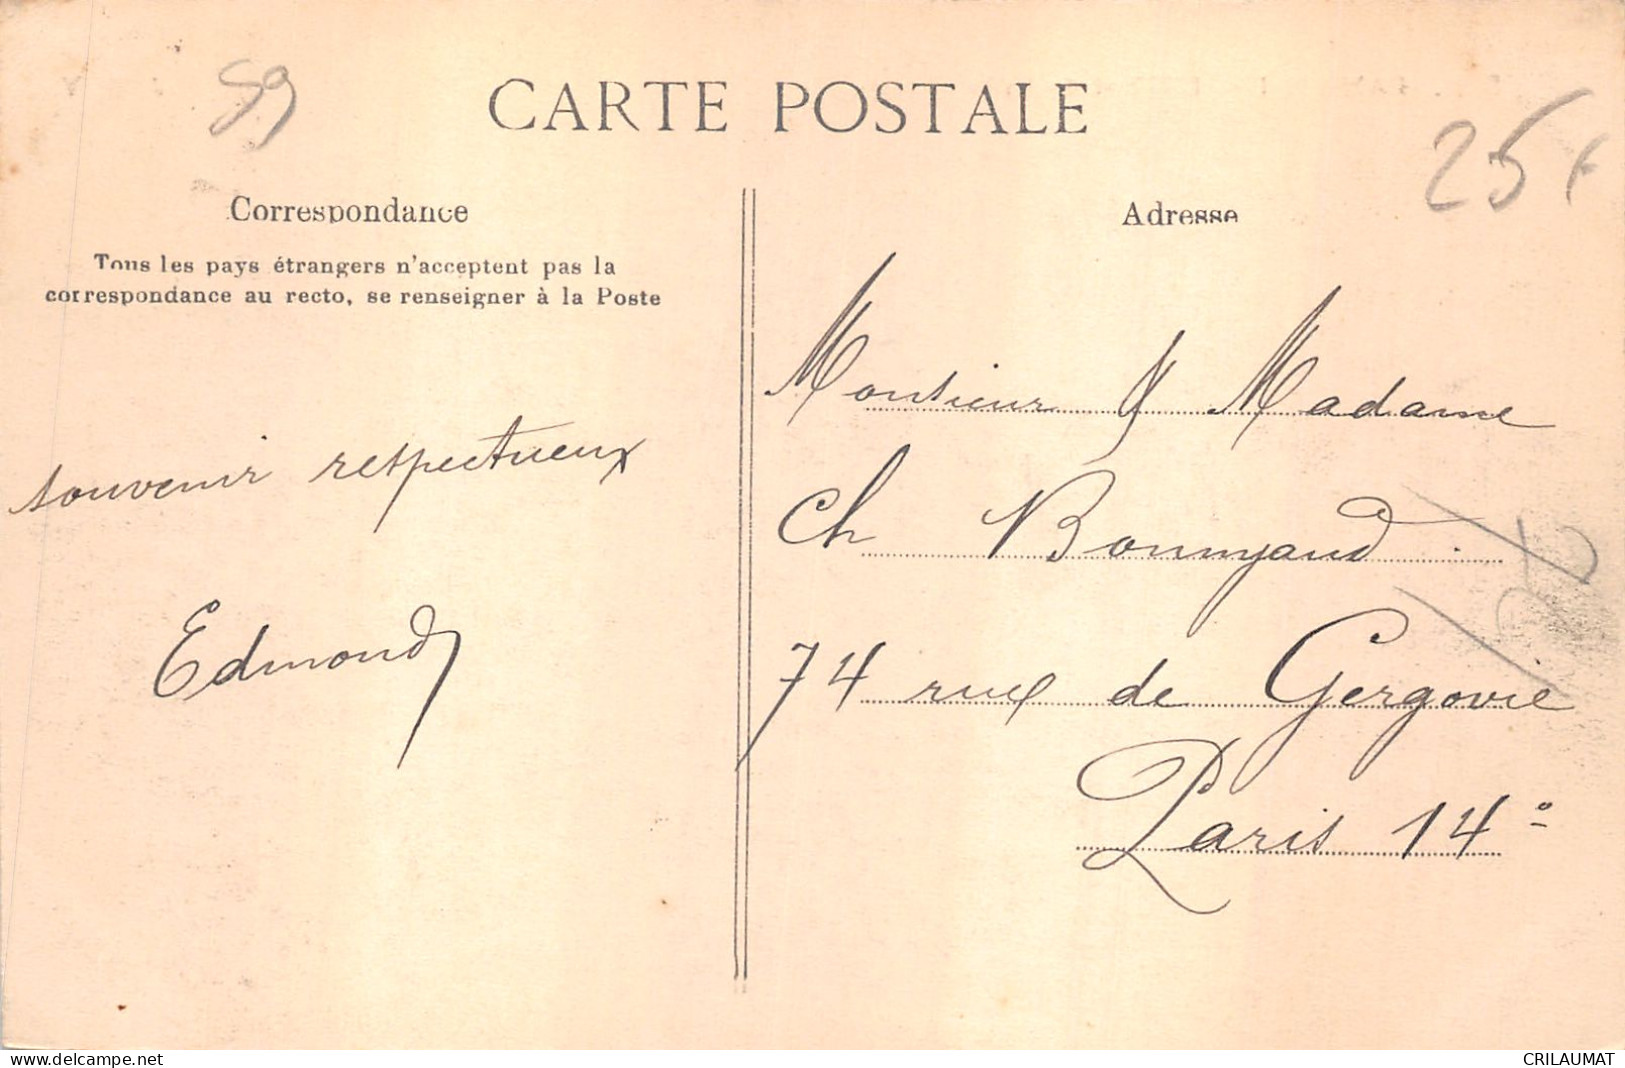 59
CARTE POSTALE
25 F
Correspondance
Tous les pays étrangers n'acceptent pas la
correspondance au recto, se renseigner à la Poste
souvenir respectueux
Edmond
Adresse
Monsieur & Madame
Ch Bonnyaud
74 rue de Gergovie
Paris 14e
www.delcampe.net
CRILAUMAT